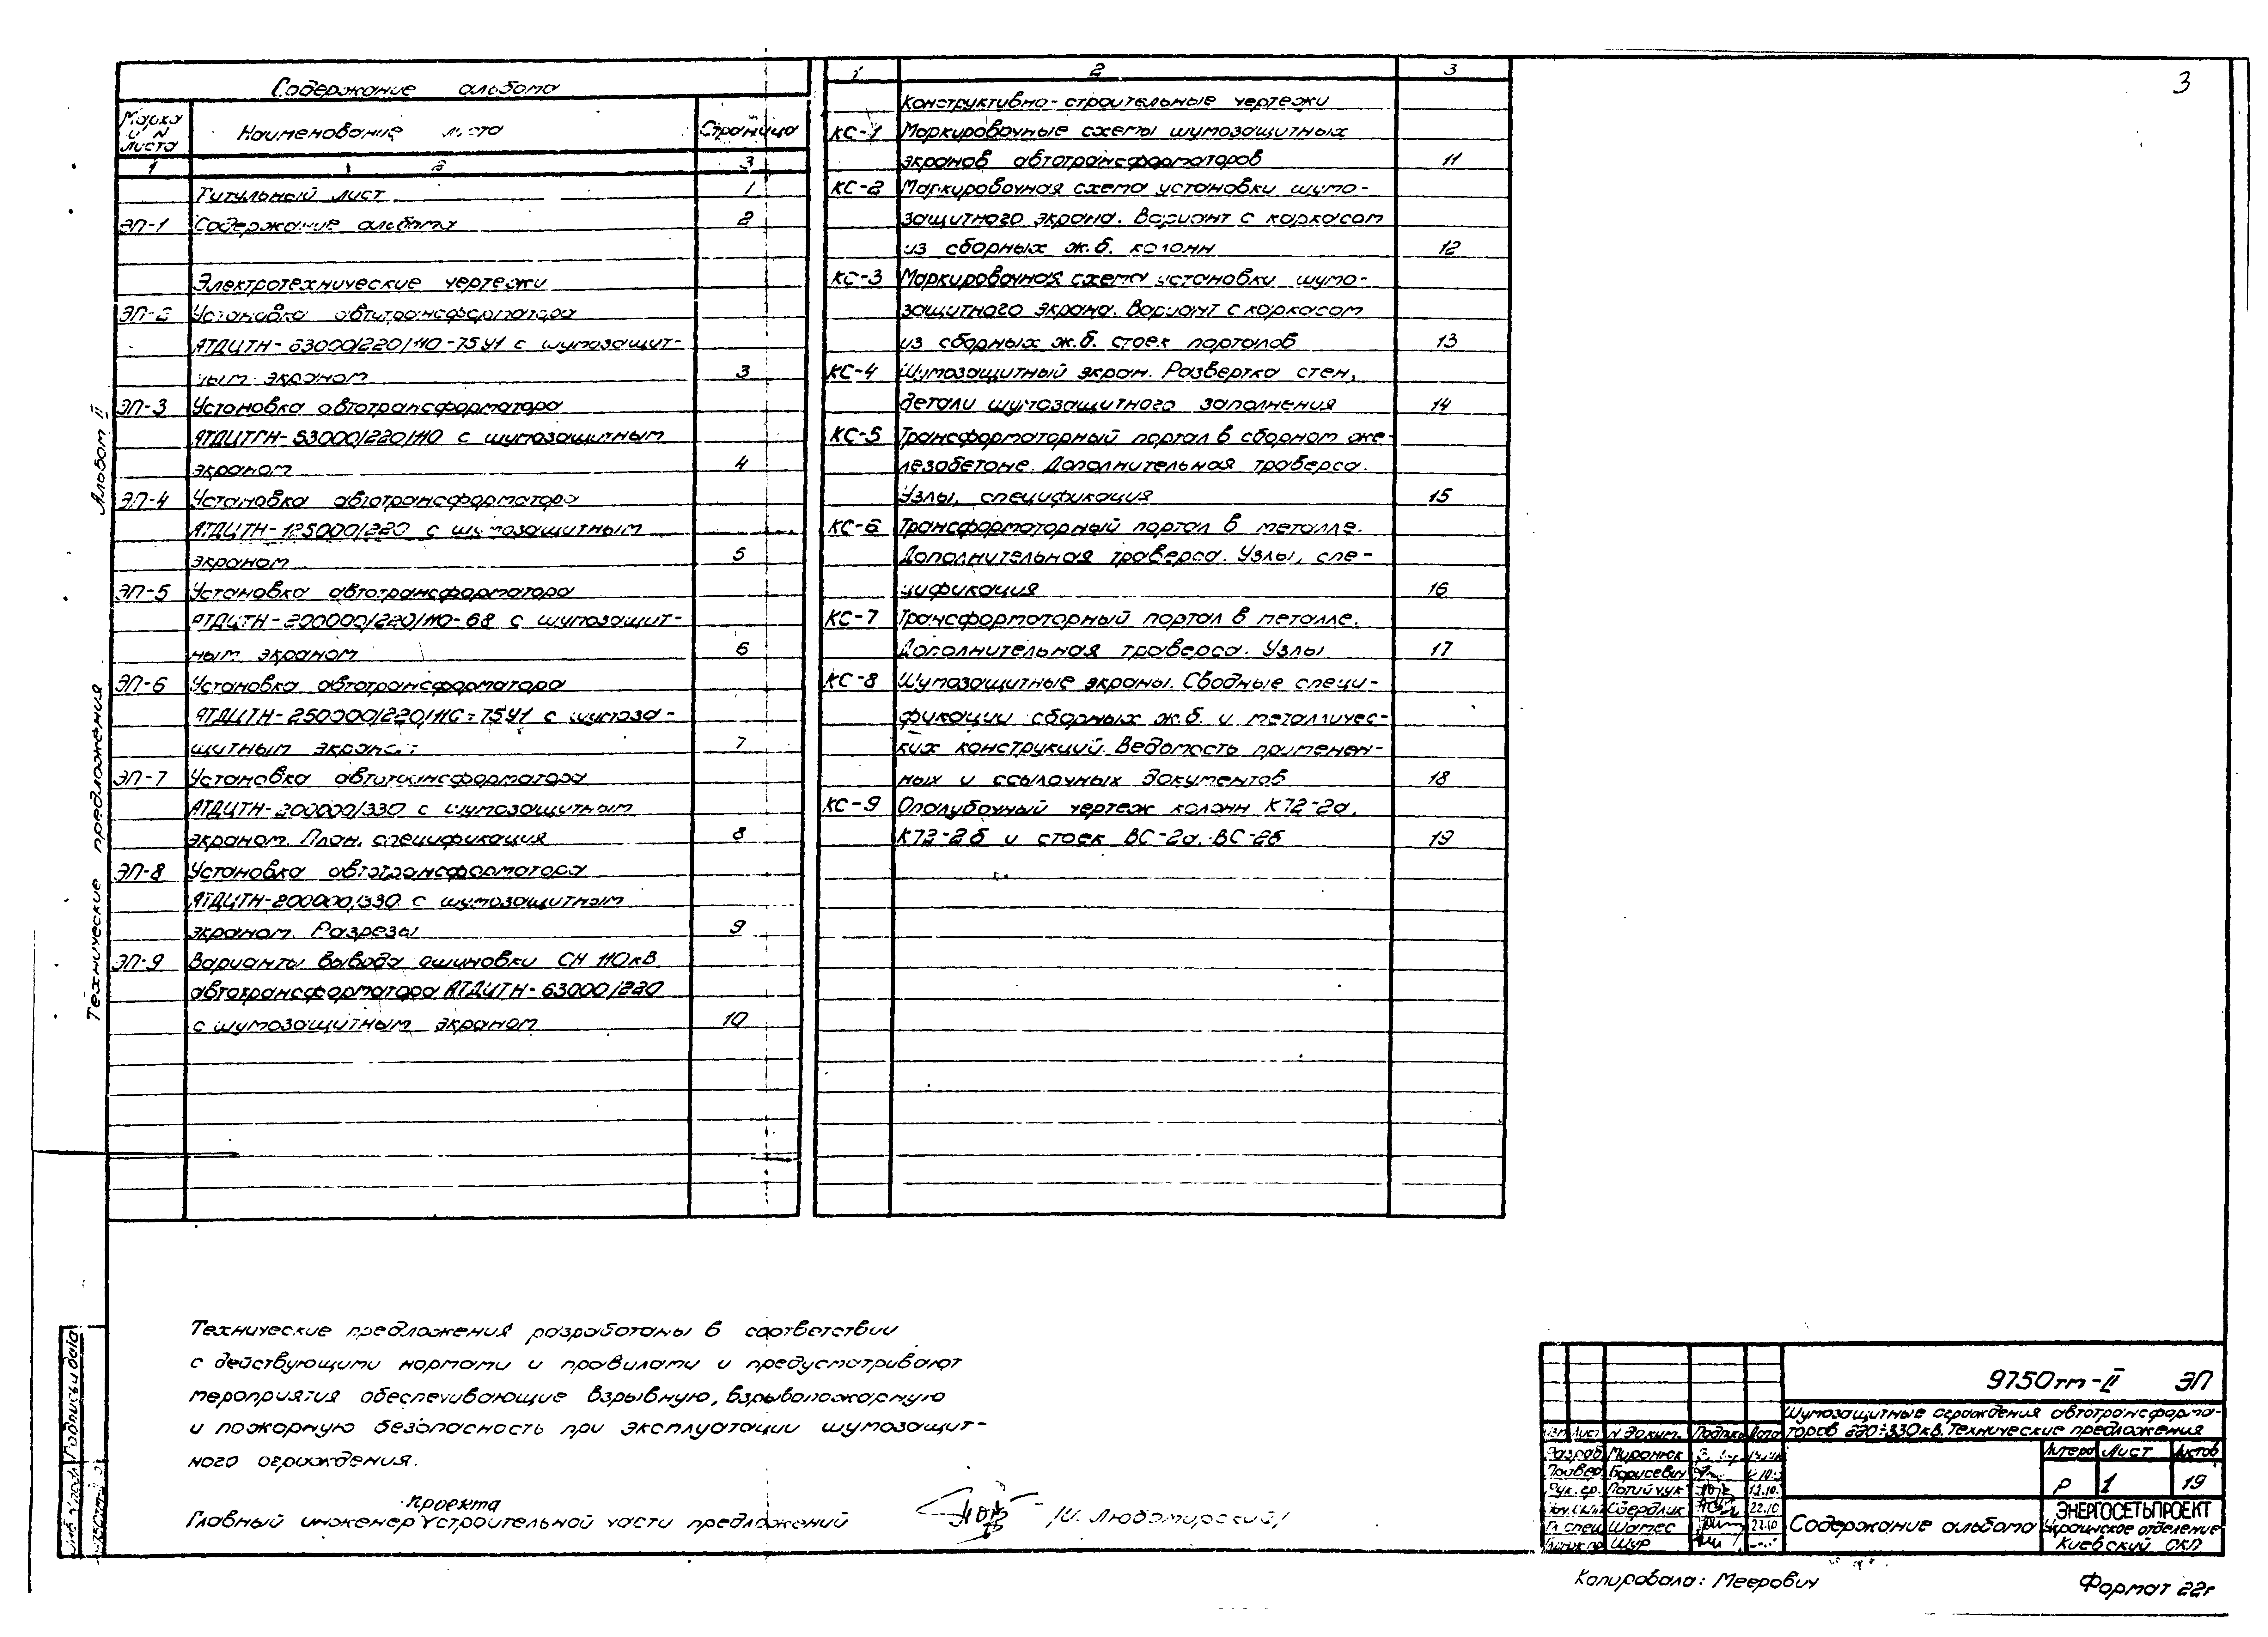 3
Содержание альбома
Марка и N листа
Наименование листа
Страница
1 2 3
Титульный лист 1
ЭП-1 Содержание альбома 2
Электротехнические чертежи
ЭП-2 Установка автотрансформатора
АТДЦТН-63000/220/110-75У1 с шумозащит-
ным экраном 3
ЭП-3 Установка автотрансформатора
АТДЦТГН-63000/220/110 с шумозащитным
экраном 4
ЭП-4 Установка автотрансформатора
АТДЦТН-125000/220 с шумозащитным
экраном 5
ЭП-5 Установка автотрансформатора
АТДЦТН-200000/220/110-68 с шумозащит-
ным экраном 6
ЭП-6 Установка автотрансформатора
АТДЦТН-250000/220/110-75У1 с шумоза-
щитным экраном 7
ЭП-7 Установка автотрансформатора
АТДЦТН-200000/330 с шумозащитным
экраном. План, спецификация 8
ЭП-8 Установка автотрансформатора
АТДЦТН-200000/330 с шумозащитным
экраном. Разрезы 9
ЭП-9 Варианты вывода ошиновки СН 110кВ
автотрансформатора АТДЦТН-63000/220
с шумозащитным экраном 10
1 2 3
Конструктивно-строительные чертежи
КС-1 Маркировочные схемы шумозащитных
экранов автотрансформаторов 11
КС-2 Маркировочная схема установки шумо-
защитного экрана. Вариант с каркасом
из сборных ж.б. колонн 12
КС-3 Маркировочная схема установки шумо-
защитного экрана. Вариант с каркасом
из сборных ж.б. стоек порталов 13
КС-4 Шумозащитный экран. Развертка стен,
детали шумозащитного заполнения 14
КС-5 Трансформаторный портал в сборном же-
лезобетоне. Дополнительная траверса.
Узлы, спецификация 15
КС-6 Трансформаторный портал в металле.
Дополнительная траверса. Узлы, спе-
цификация 16
КС-7 Трансформаторный портал в металле.
Дополнительная траверса. Узлы 17
КС-8 Шумозащитные экраны. Сводные специ-
фикации сборных ж.б. и металличес-
ких конструкций. Ведомость применен-
ных и ссылочных документов 18
КС-9 Опалубочный чертеж колонн К72-2а,
К72-2б и стоек ВС-2а, ВС-2б 19
Технические предложения Альбом II
Технические предложения разработаны в соответствии
с действующими нормами и правилами и предусматривают
мероприятия обеспечивающие взрывную, взрывопожарную
и пожарную безопасность при эксплуатации шумозащит-
ного ограждения.
проекта
Главный инженер строительной части предложений /И. Любомирский/
9750тм-II ЭП
Шумозащитные ограждения автотрансформа-
торов 220÷330кВ. Технические предложения
Изм Лист N докум. Подпись Дата
Разраб Миронюк
Провер Борисевич
Рук. гр. Потийчук 12.10.
Нач. Свердлик 22.10
Гл. спец Шамес 22.10
Шур
Литера Лист Листов
Р 1 19
Содержание альбома
ЭНЕРГОСЕТЬПРОЕКТ
Украинское отделение
Киевский ОКП
Подпись и дата
Копировала: Меерович
Формат 22г